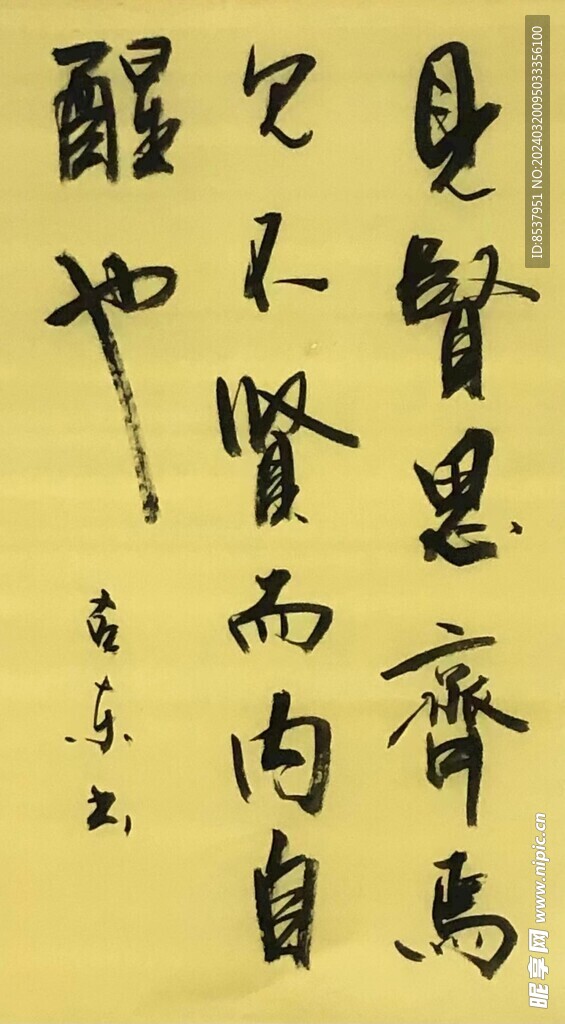 見賢思齊焉
見不賢而內自
醒也
古东书
ID:8537951 NO:20240320095033356100
昵享网 www.nipic.cn